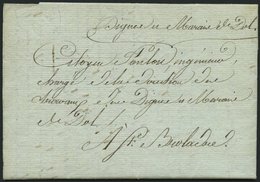 Digues et Marais de Dol.
Citoyen Ponton ingénieur
chargé de la Direction des
travaux des Digues et Marais
de Dol /
A